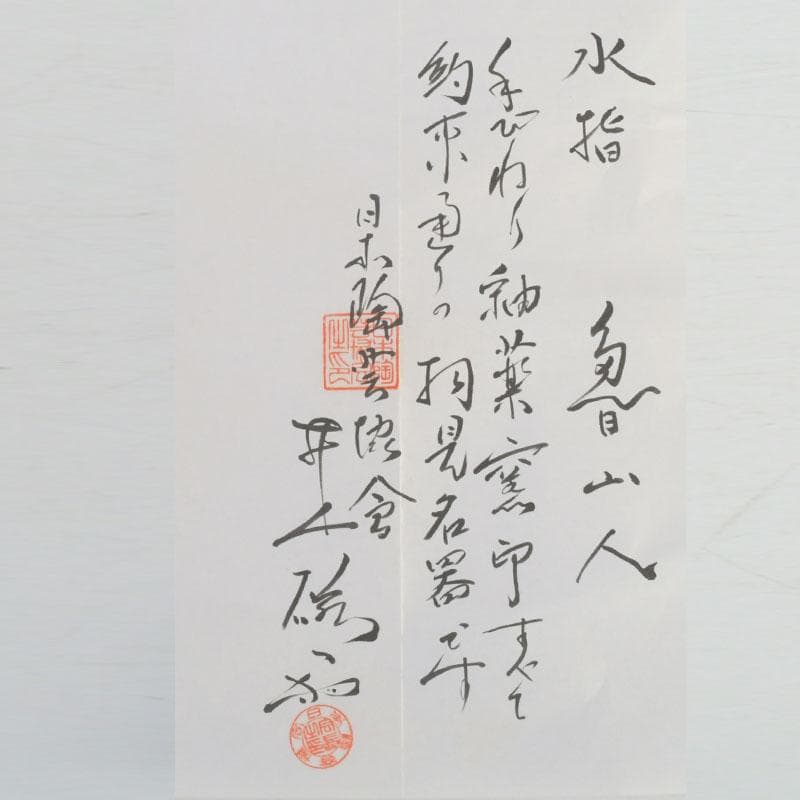 水指 魯山人
手びねり釉薬窯印すべて
約束通りの 拝見名器です
日本陶芸協会
井上